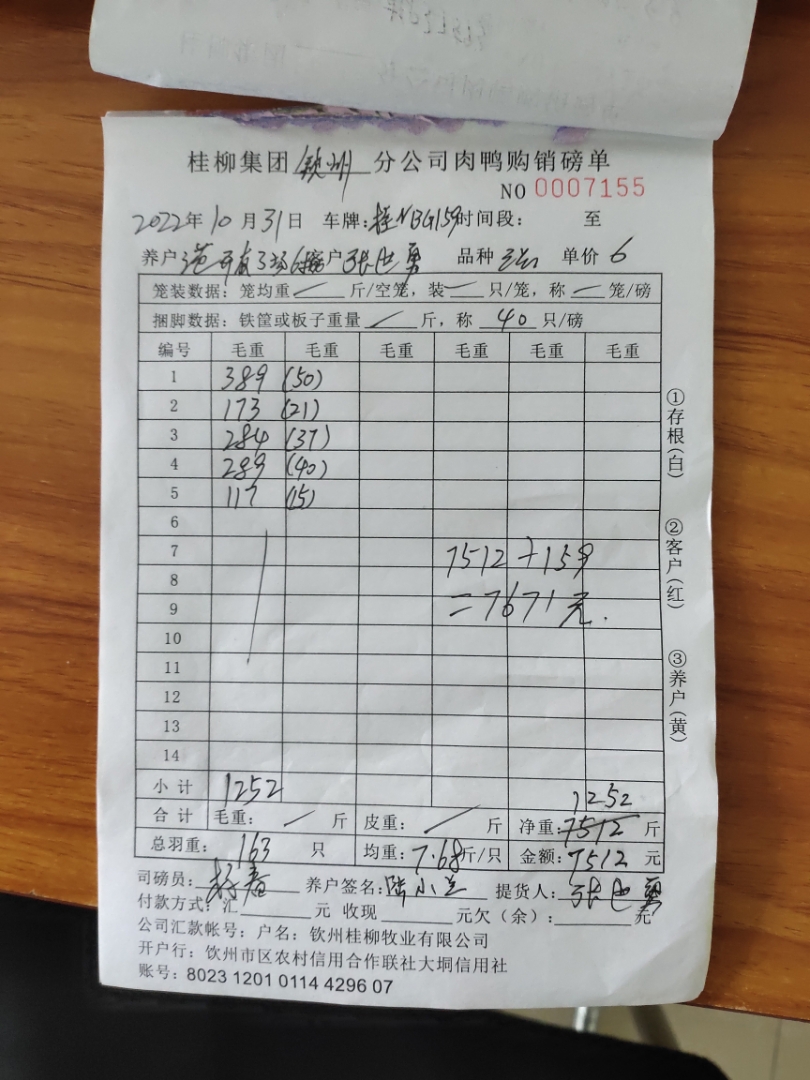 桂柳集团钦州分公司肉鸭购销磅单
NO 0007155
2022年10月31日 车牌:桂NBG159时间段: 至
养户 客户张世勇 品种 单价6
笼装数据:笼均重 斤/空笼,装 只/笼,称 笼/磅
捆脚数据:铁筐或板子重量 斤,称 40 只/磅
编号 毛重 毛重 毛重 毛重 毛重 毛重
1 389 (50)
2 173 (21)
3 284 (37)
4 289 (40)
5 117 (15)
6
7 7512+159
8
9 =7671元.
10
11
12
13
14
小计 1252
1252
合计 毛重: 斤 皮重: 斤 净重:7512斤
总羽重: 163 只 均重:7.68斤/只 金额:7512元
司磅员: 养户签名:陆小 提货人:张世勇
付款方式:汇 元 收现 元欠(余): 元
公司汇款帐号:户名:钦州桂柳牧业有限公司
开户行:钦州市区农村信用合作联社大垌信用社
账号:8023 1201 0114 4296 07
①存根(白)
②客户(红)
③养户(黄)